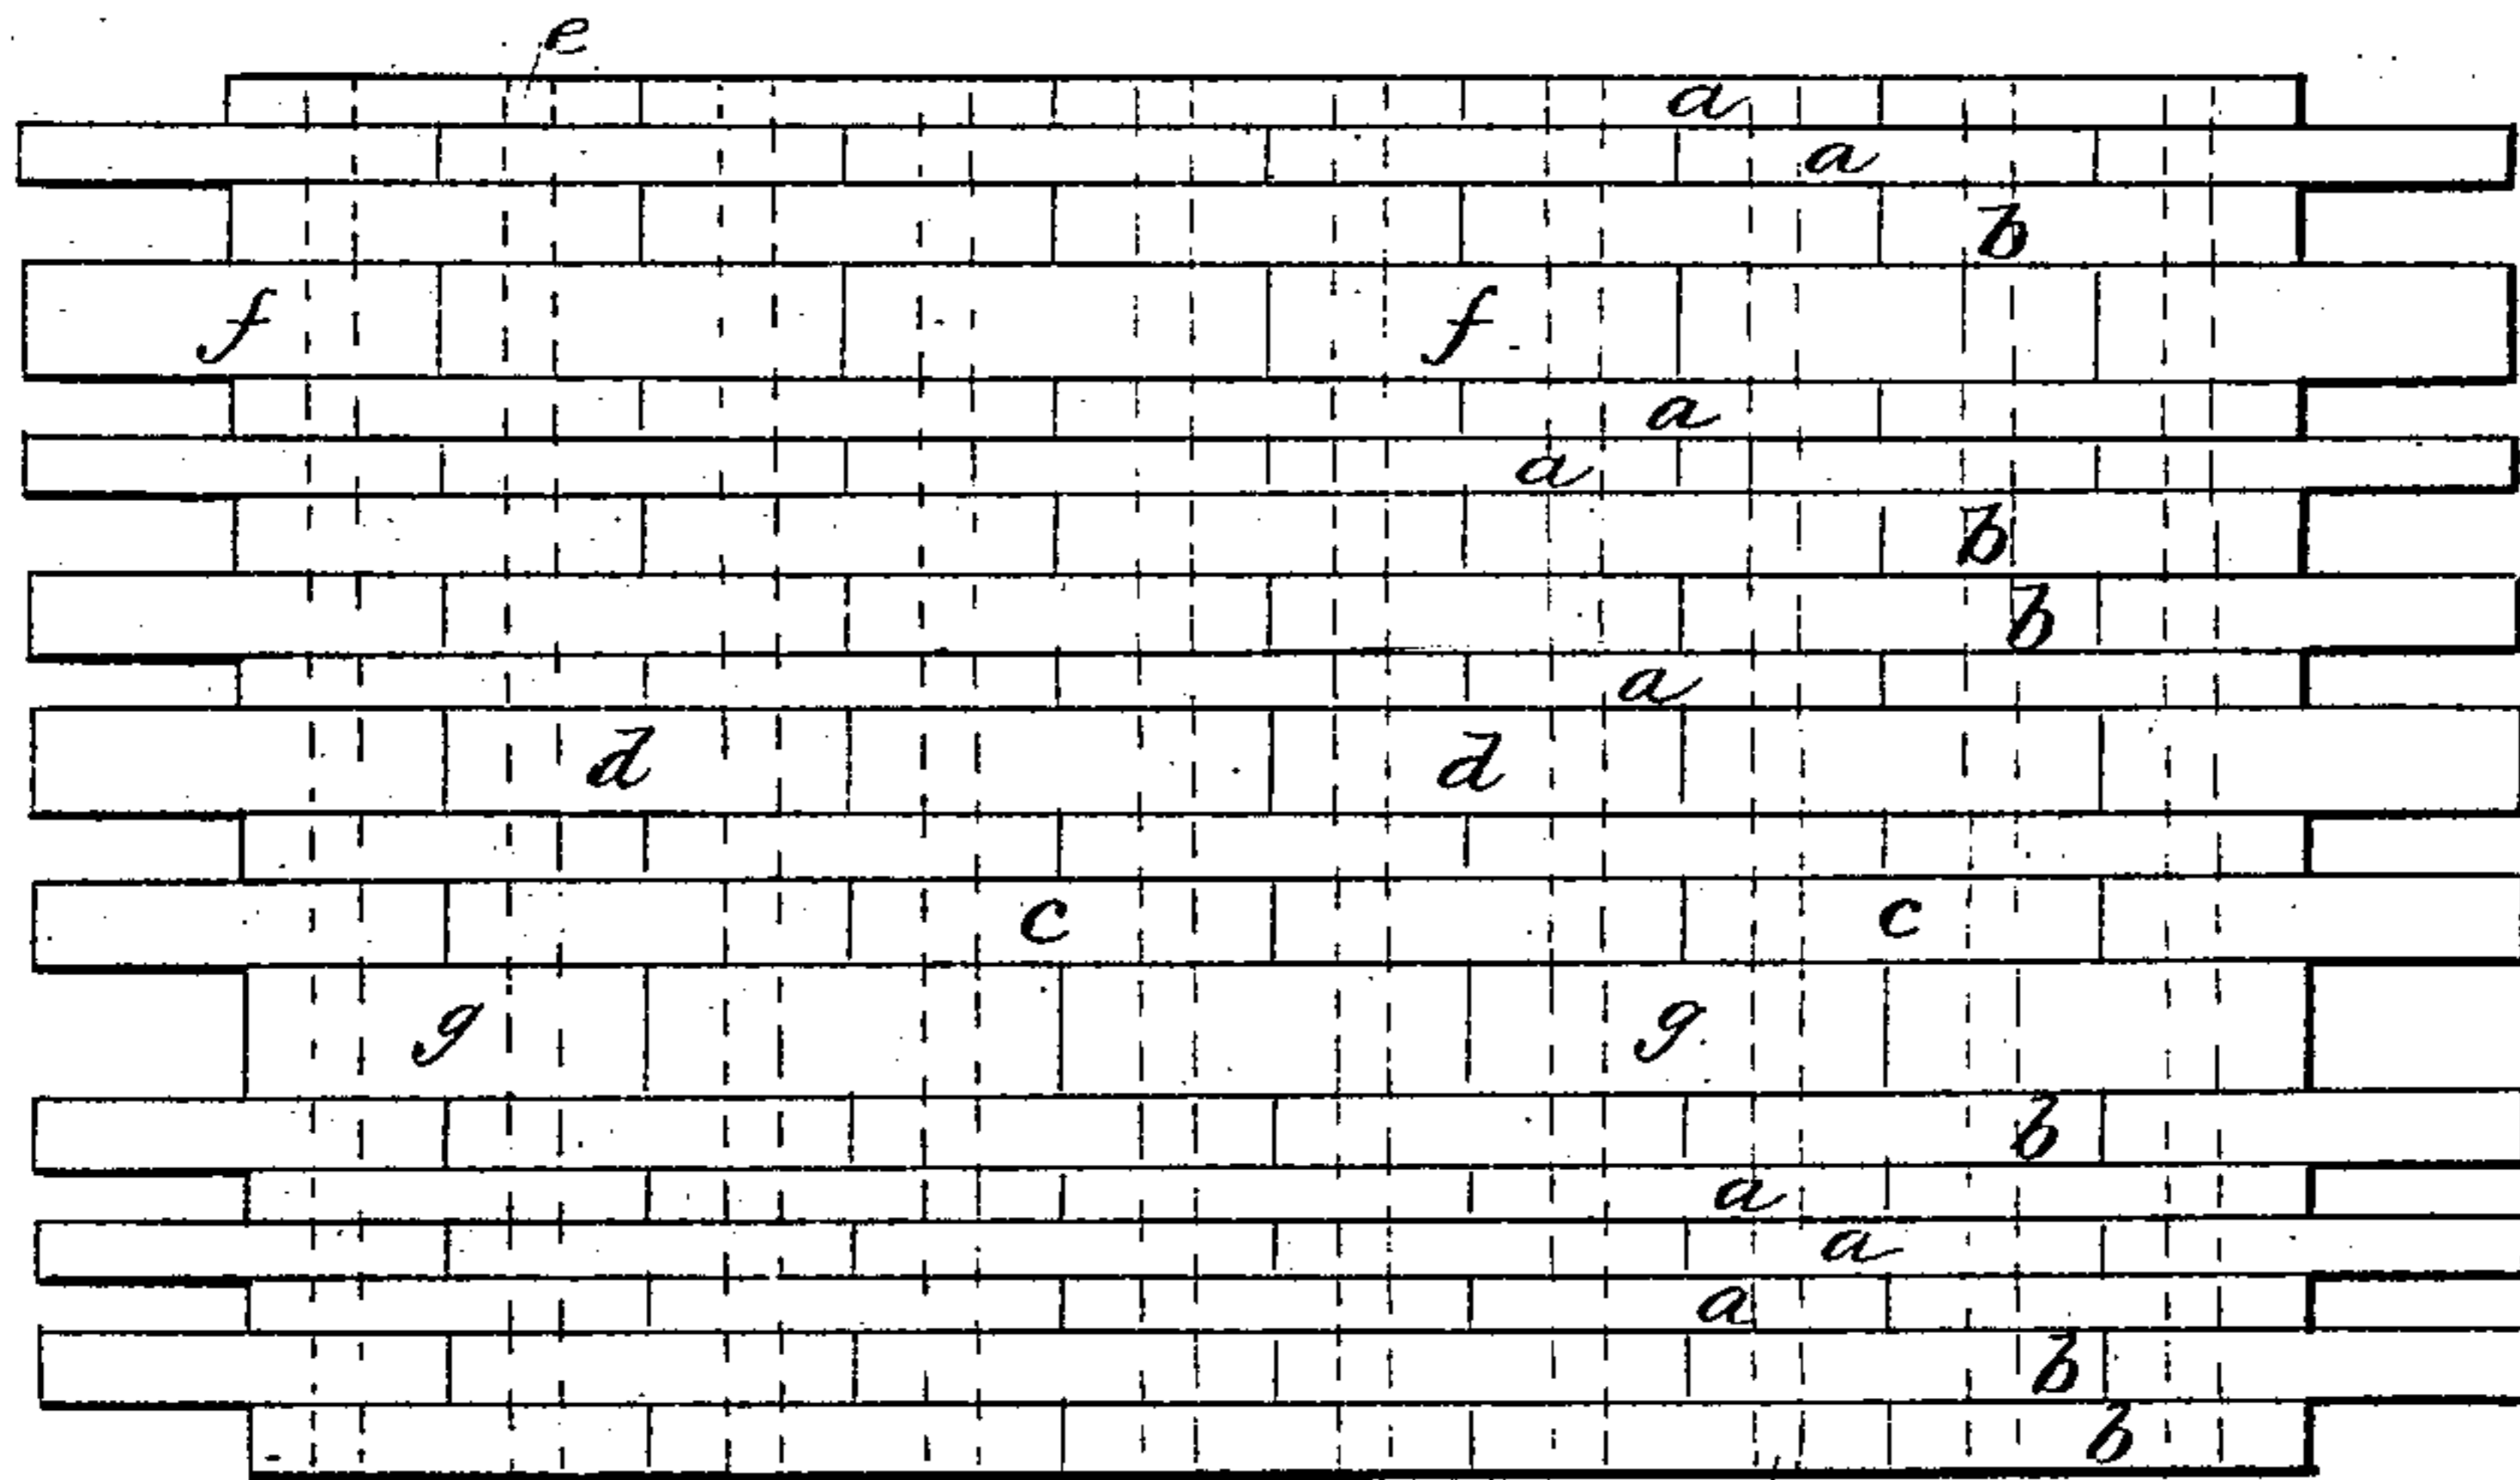 e
a
a
b
f f
a
a
b
b
a
d d
c c
g g
b
a
a
a
b
b